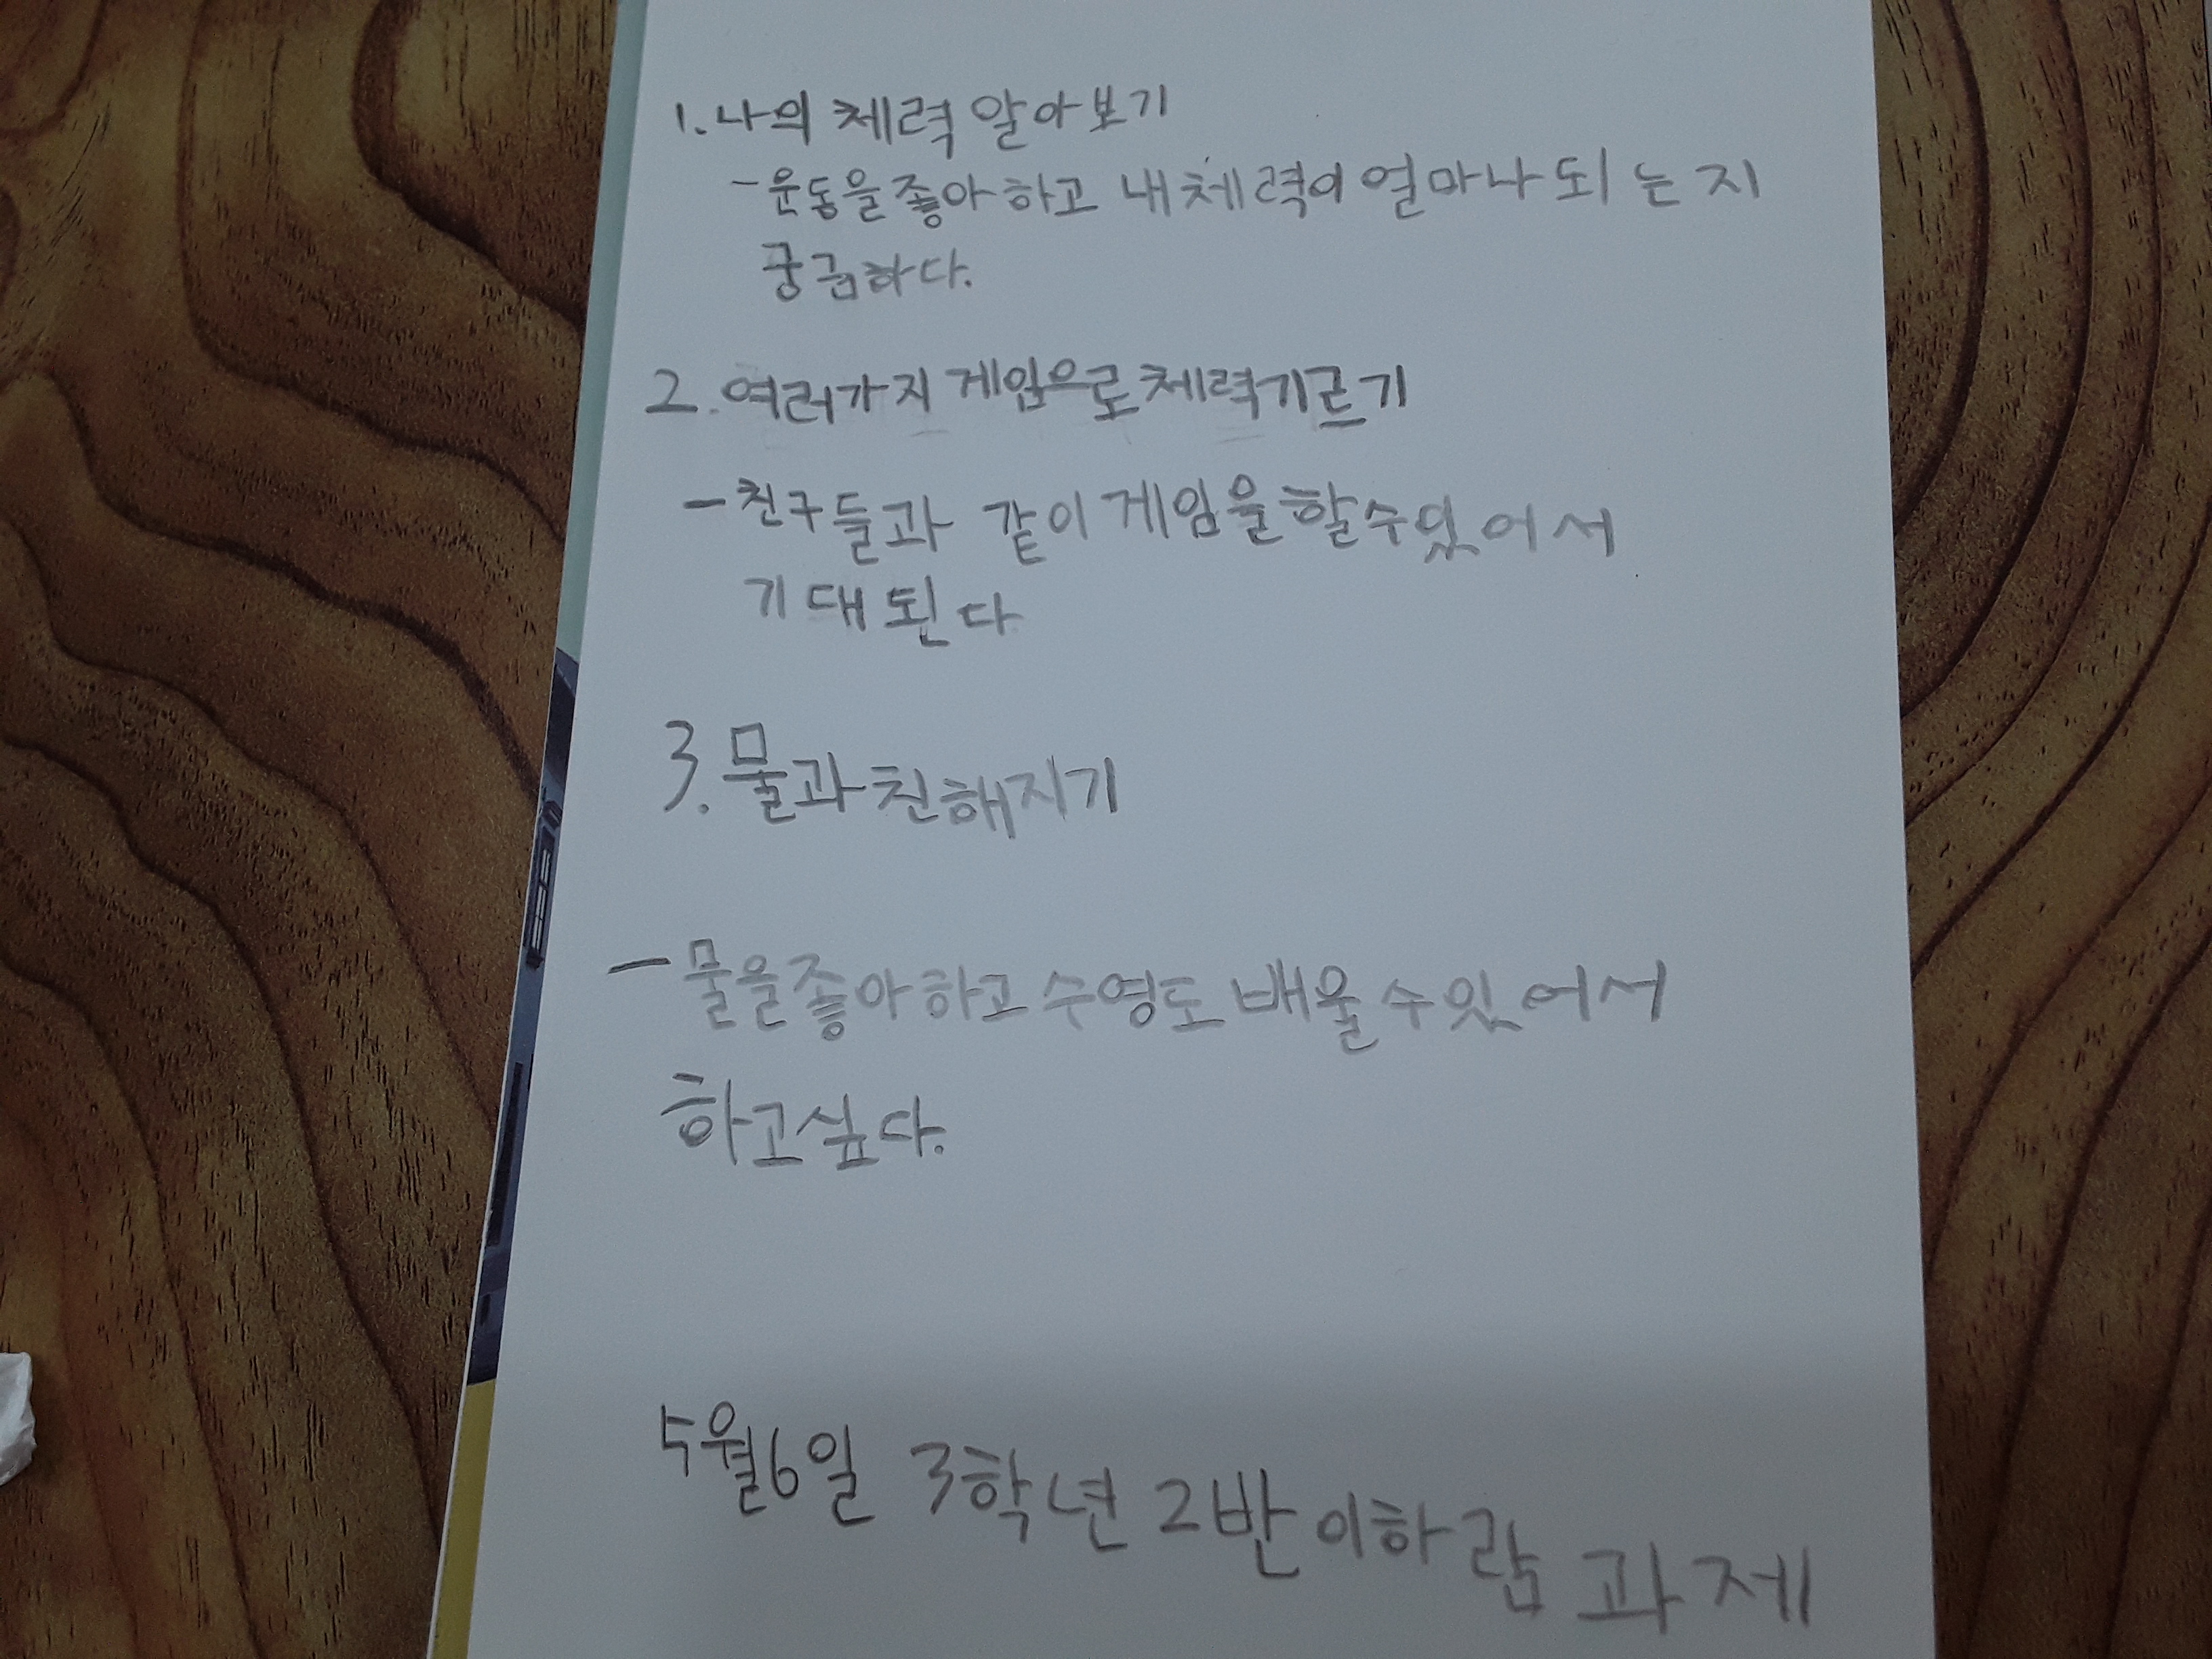 1. 나의 체력 알아보기
- 운동을 좋아하고 내 체력이 얼마나 되는지
궁금하다.
2. 여러가지 게임으로 체력기르기
- 친구들과 같이 게임을 할수있어서
기대된다
3. 물과 친해지기
- 물을 좋아하고 수영도 배울 수 있어서
하고싶다.
5월6일 3학년 2반 이하람 과제